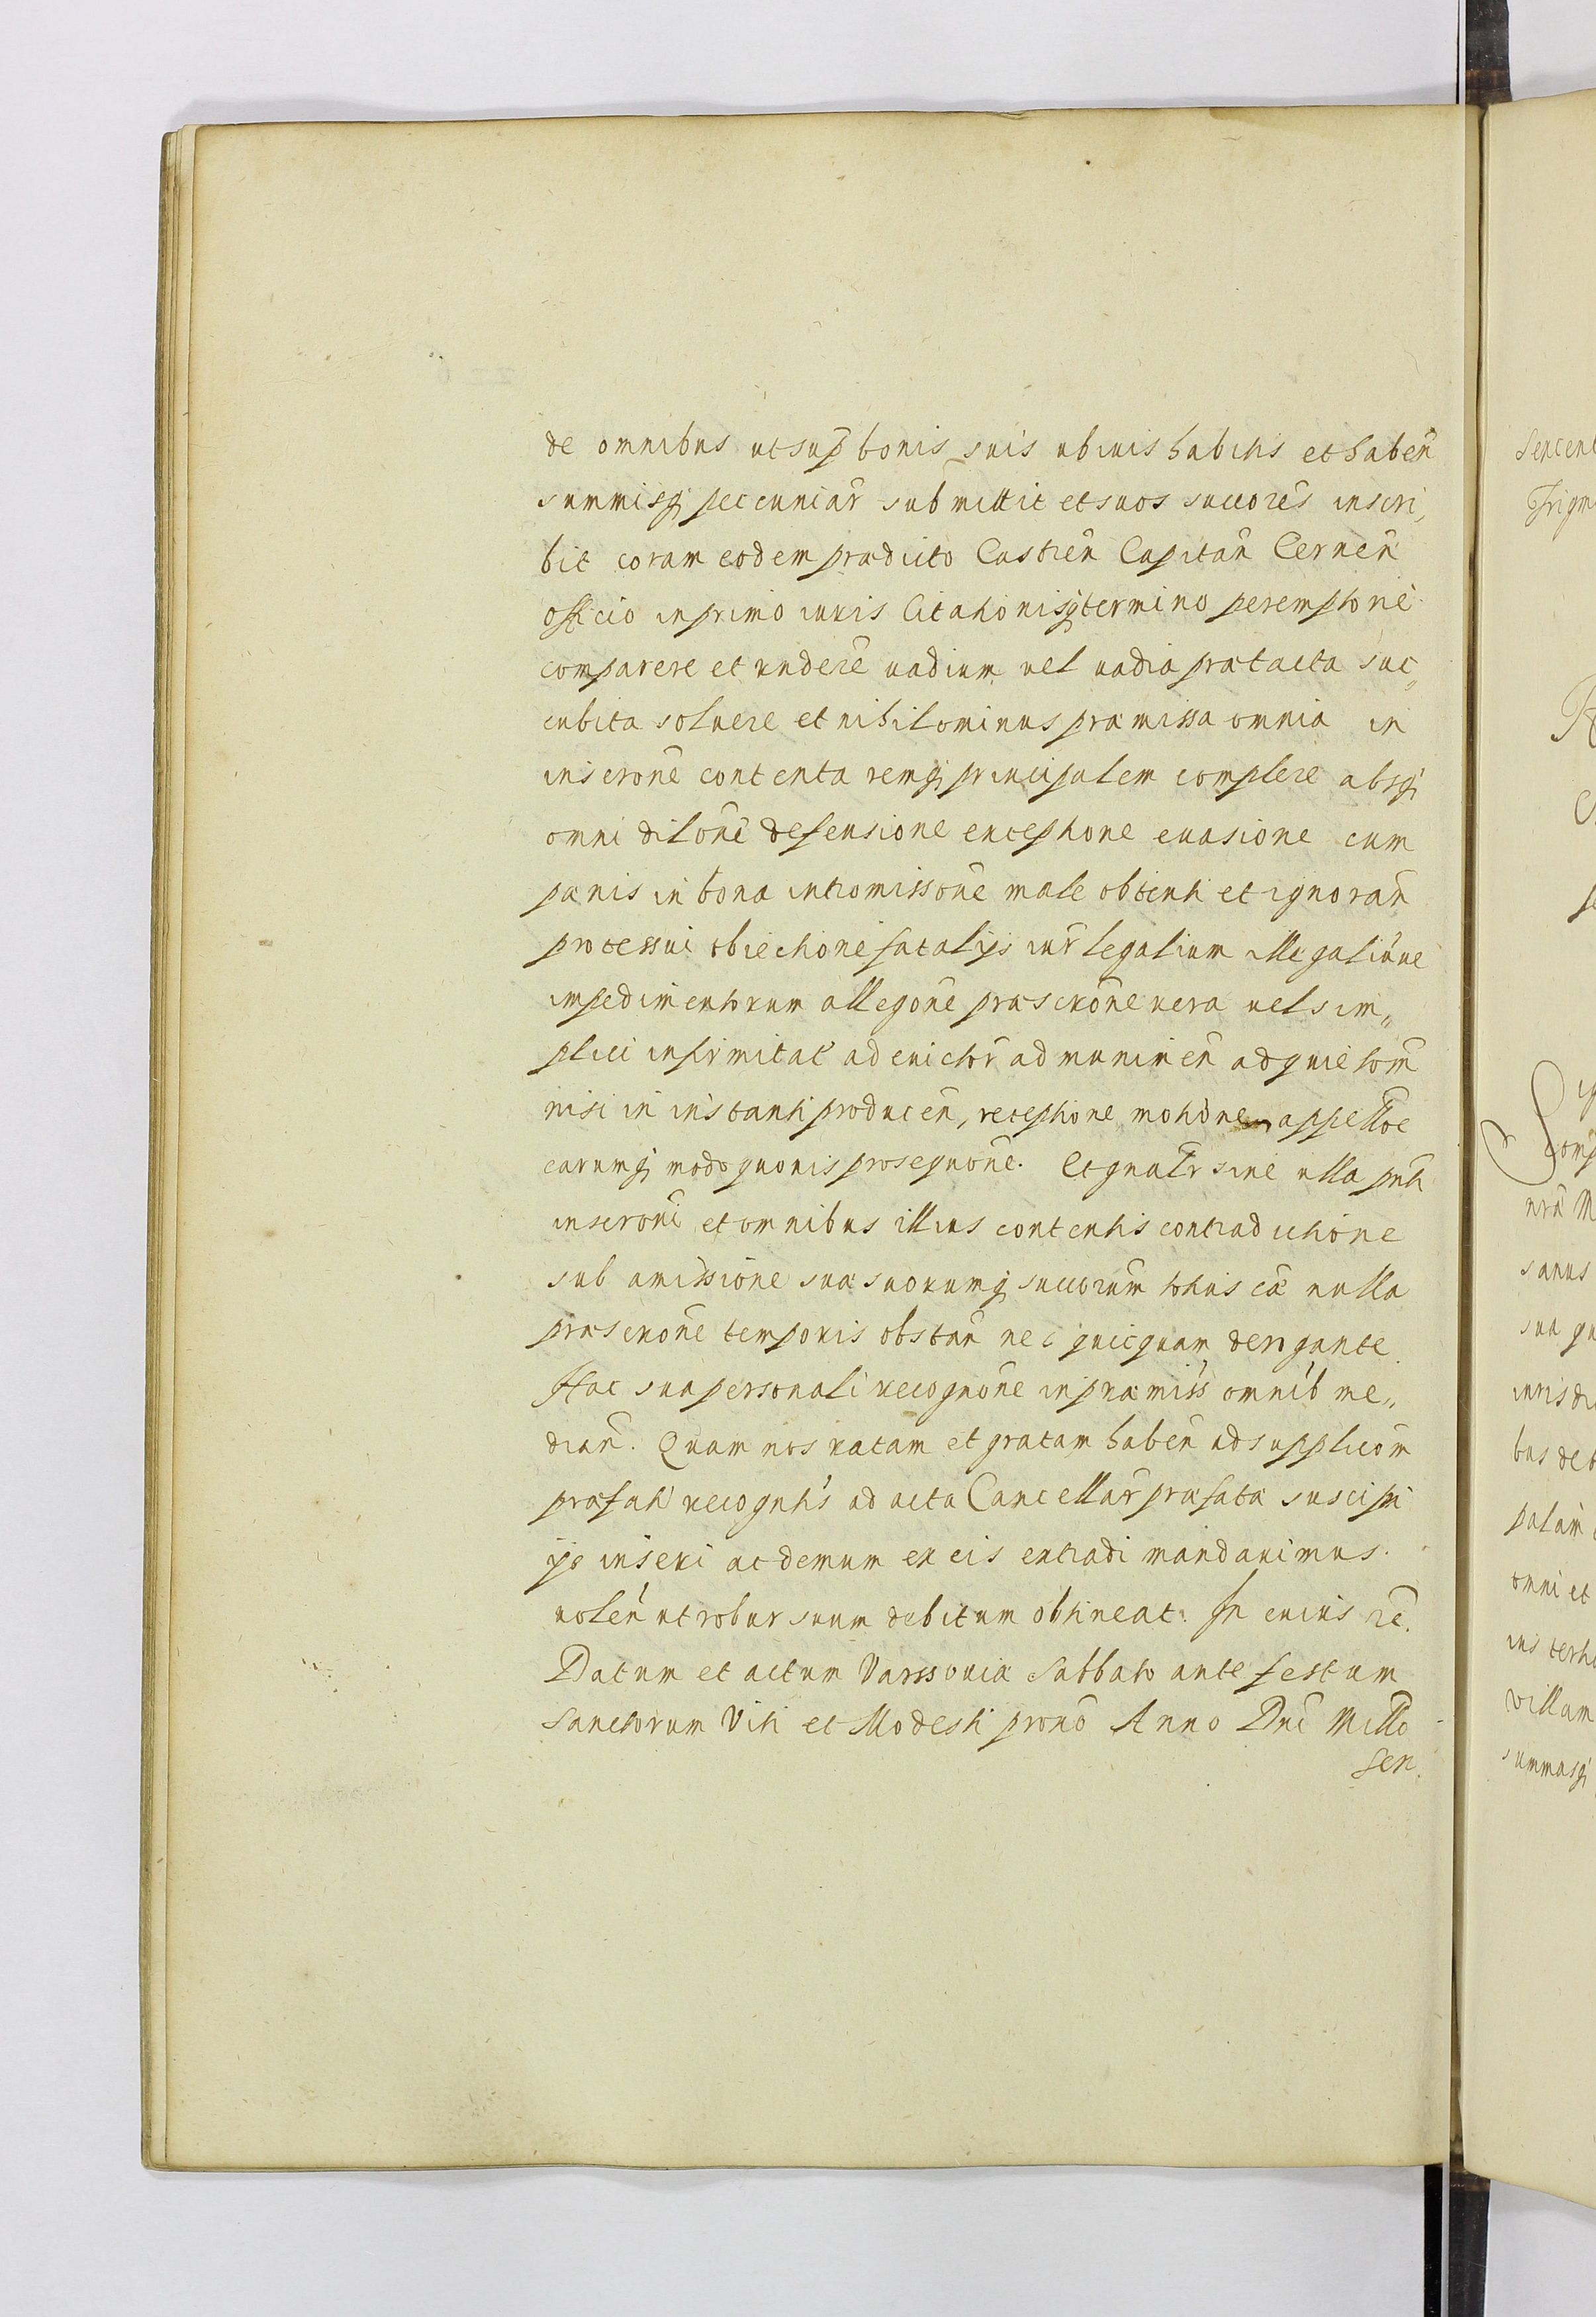 de omnibus ut sup̃ bonis suis ubiuis habitis et haben̄
summisq́ pecuniar̄ submittit et suos succōres inscri,
bit coram eodem prædicto Castren̄ Capitan̄ Cernen̄
officio in primo iuris Citationisq́ termino peremptorie
comparere et rndēre uadium uel uadia prætacta suc„
cubita soluere et nihilominus præmissa omnia in
inscrōne contenta remq́ principalem complere absq́
omni dilōne defensione exceptione euasione cum
pænis in bona intromissōne male obtenti et ignoran̄
processui obiectione fatalijs iur̄ legalium illegaliūue
impedimentorum allegōne præscrōne uera uel sim„
plici infirmitat̄ ad euictor̄ ad munimen̄ ad quietōm̄
nisi in instanti producen̄, receptione motiōne appellōe
earumq́ modo quouis prosequōne. Et gnalr̄ sine ulla pnti
inscrōni et omnibus illius contentis contradictione
sub amissione suæ suorumq́ succōrum totius cæ nulla
præscrōne temporis obstan̄ nec quicquam derogante
Hac sua personali recognōne in præmiss̄ omnib̄ me„
dian̄. Quam nos ratam et gratam haben̄ ad supplicōm
præfati recogntis̄ ad acta Cancellar̄ præfatæ suscipi
ijs inseri ac demum ex eis extradi mandauimus.
uolen̄ ut robur suum debitum obtineat. In cuius rē.
Datum et actum Varssouiæ Sabbato ante festum
Sanctorum Viti et Modesti proxō Anno Dnī Millō
sex.